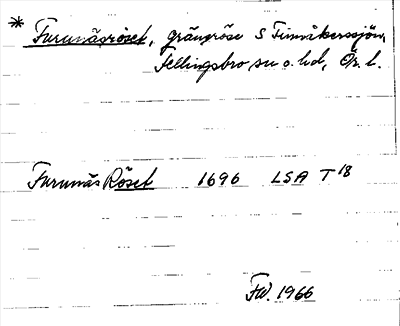 * Furunäsröset, gränsröse S Finnåkerssjön,
Fellingsbro sn o. hd, Ör. l.
Furunäs Röset 1696 LSA T 18
FW. 1966